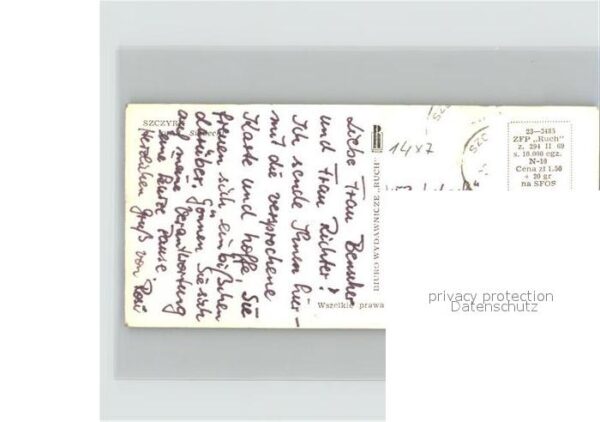 SZCZYRK
Liebe Frau
und Frau Richter!
Ich sende Ihnen hier-
mit die versprochene
Karte und hoffe, Sie
freuen sich ein bißchen
darüber. Gönnen Sie sich
auf meine Verantwortung
eine kurze Pause.
Herzlichen Gruß von
BIURO WYDAWNICZE „RUCH"
Wszelkie prawa
14x7
SZC
23—2485
ZFP „Ruch"
z. 294 II 69
s. 10.000 egz.
N-10
Cena zł 1.50
+ 20 gr
na SFOS
privacy protection
Datenschutz